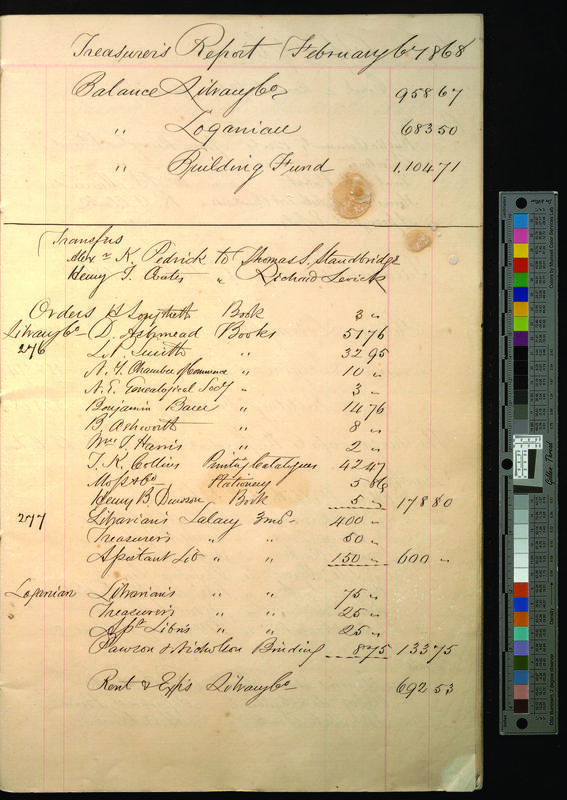 Treasurer's Report February 6th 1868
Balance Library Co 958 67
" Loganian 683 50
" Building Fund 1,104 71
Transfers
Alexr N. Pedrick to Thomas S. Standbridge
Henry T. Coates " Richard Levick
Orders H Book 3 "
Library Co - D. Ashmead Books 51 76
276 L. P. Smith " 32 95
N. Y. Chamber of Commerce " 10 "
N. E. Genealogical Socy " 3 "
Benjamin " 14 76
B. Ashworth " 8 "
Wm T. Harris " 2 "
T. K. Collins Printing Catalogues 42 47
Moss & Co Stationery 5 86
Henry B Dawson Book 5 " 178 80
277 Librarian's Salary 3 mos 400 "
Treasurer's " " 50 "
Assistant Lib " " 150 " 600 "
Loganian Librarian's " " 75 "
Treasurer's " " 25 "
Asst Libn's " " 25 "
Pawson & Nicholson Binding 8 75 133 75
Rent & Exps Library Co 692 53